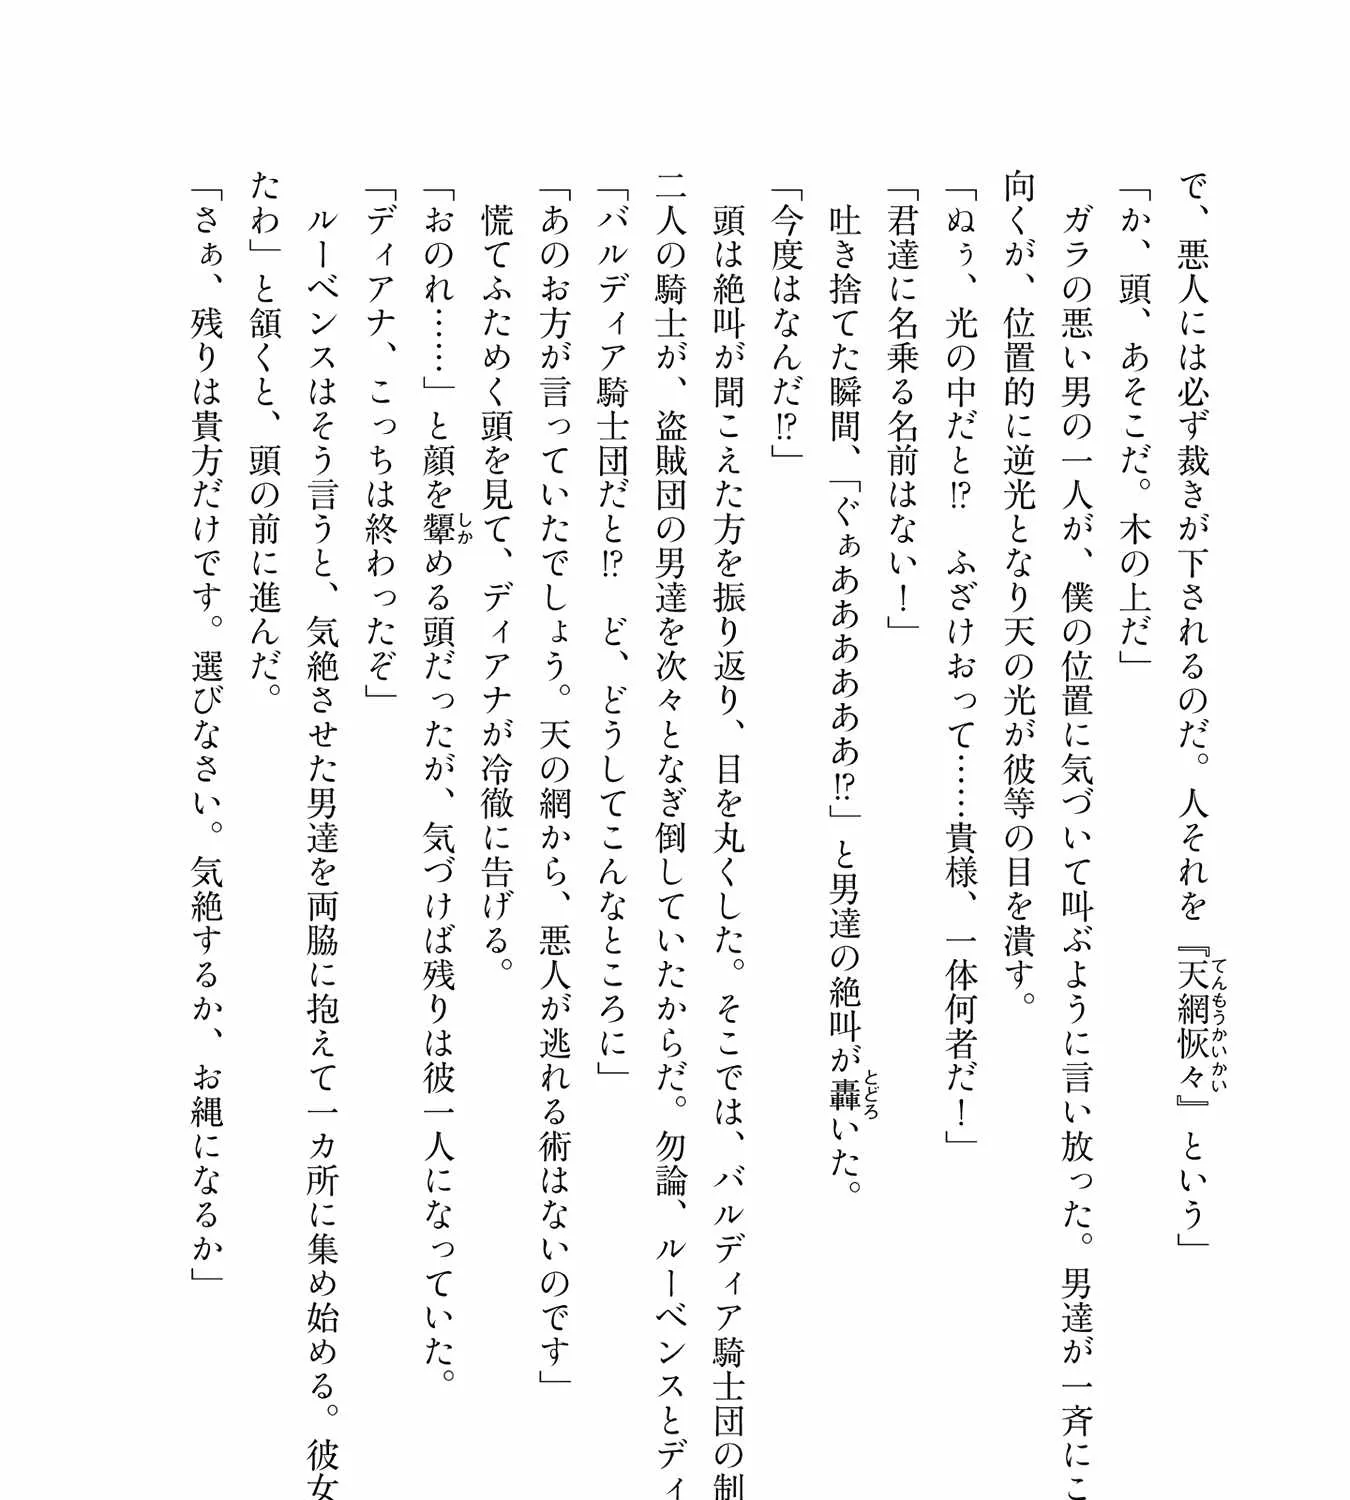 で、悪人には必ず裁きが下されるのだ。人それを『天網恢々』という」
「か、頭、あそこだ。木の上だ」
ガラの悪い男の一人が、僕の位置に気づいて叫ぶように言い放った。男達が一斉にこ
向くが、位置的に逆光となり天の光が彼等の目を潰す。
「ぬぅ、光の中だと⁉　ふざけおって……貴様、一体何者だ！」
「君達に名乗る名前はない！」
吐き捨てた瞬間、「ぐぁあああああ⁉」と男達の絶叫が轟いた。
「今度はなんだ⁉」
頭は絶叫が聞こえた方を振り返り、目を丸くした。そこでは、バルディア騎士団の制
二人の騎士が、盗賊団の男達を次々となぎ倒していたからだ。勿論、ルーベンスとディ
「バルディア騎士団だと⁉　ど、どうしてこんなところに」
「あのお方が言っていたでしょう。天の網から、悪人が逃れる術はないのです」
慌てふためく頭を見て、ディアナが冷徹に告げる。
「おのれ……」と顔を顰める頭だったが、気づけば残りは彼一人になっていた。
「ディアナ、こっちは終わったぞ」
ルーベンスはそう言うと、気絶させた男達を両脇に抱えて一カ所に集め始める。彼女
たわ」と頷くと、頭の前に進んだ。
「さぁ、残りは貴方だけです。選びなさい。気絶するか、お縄になるか」